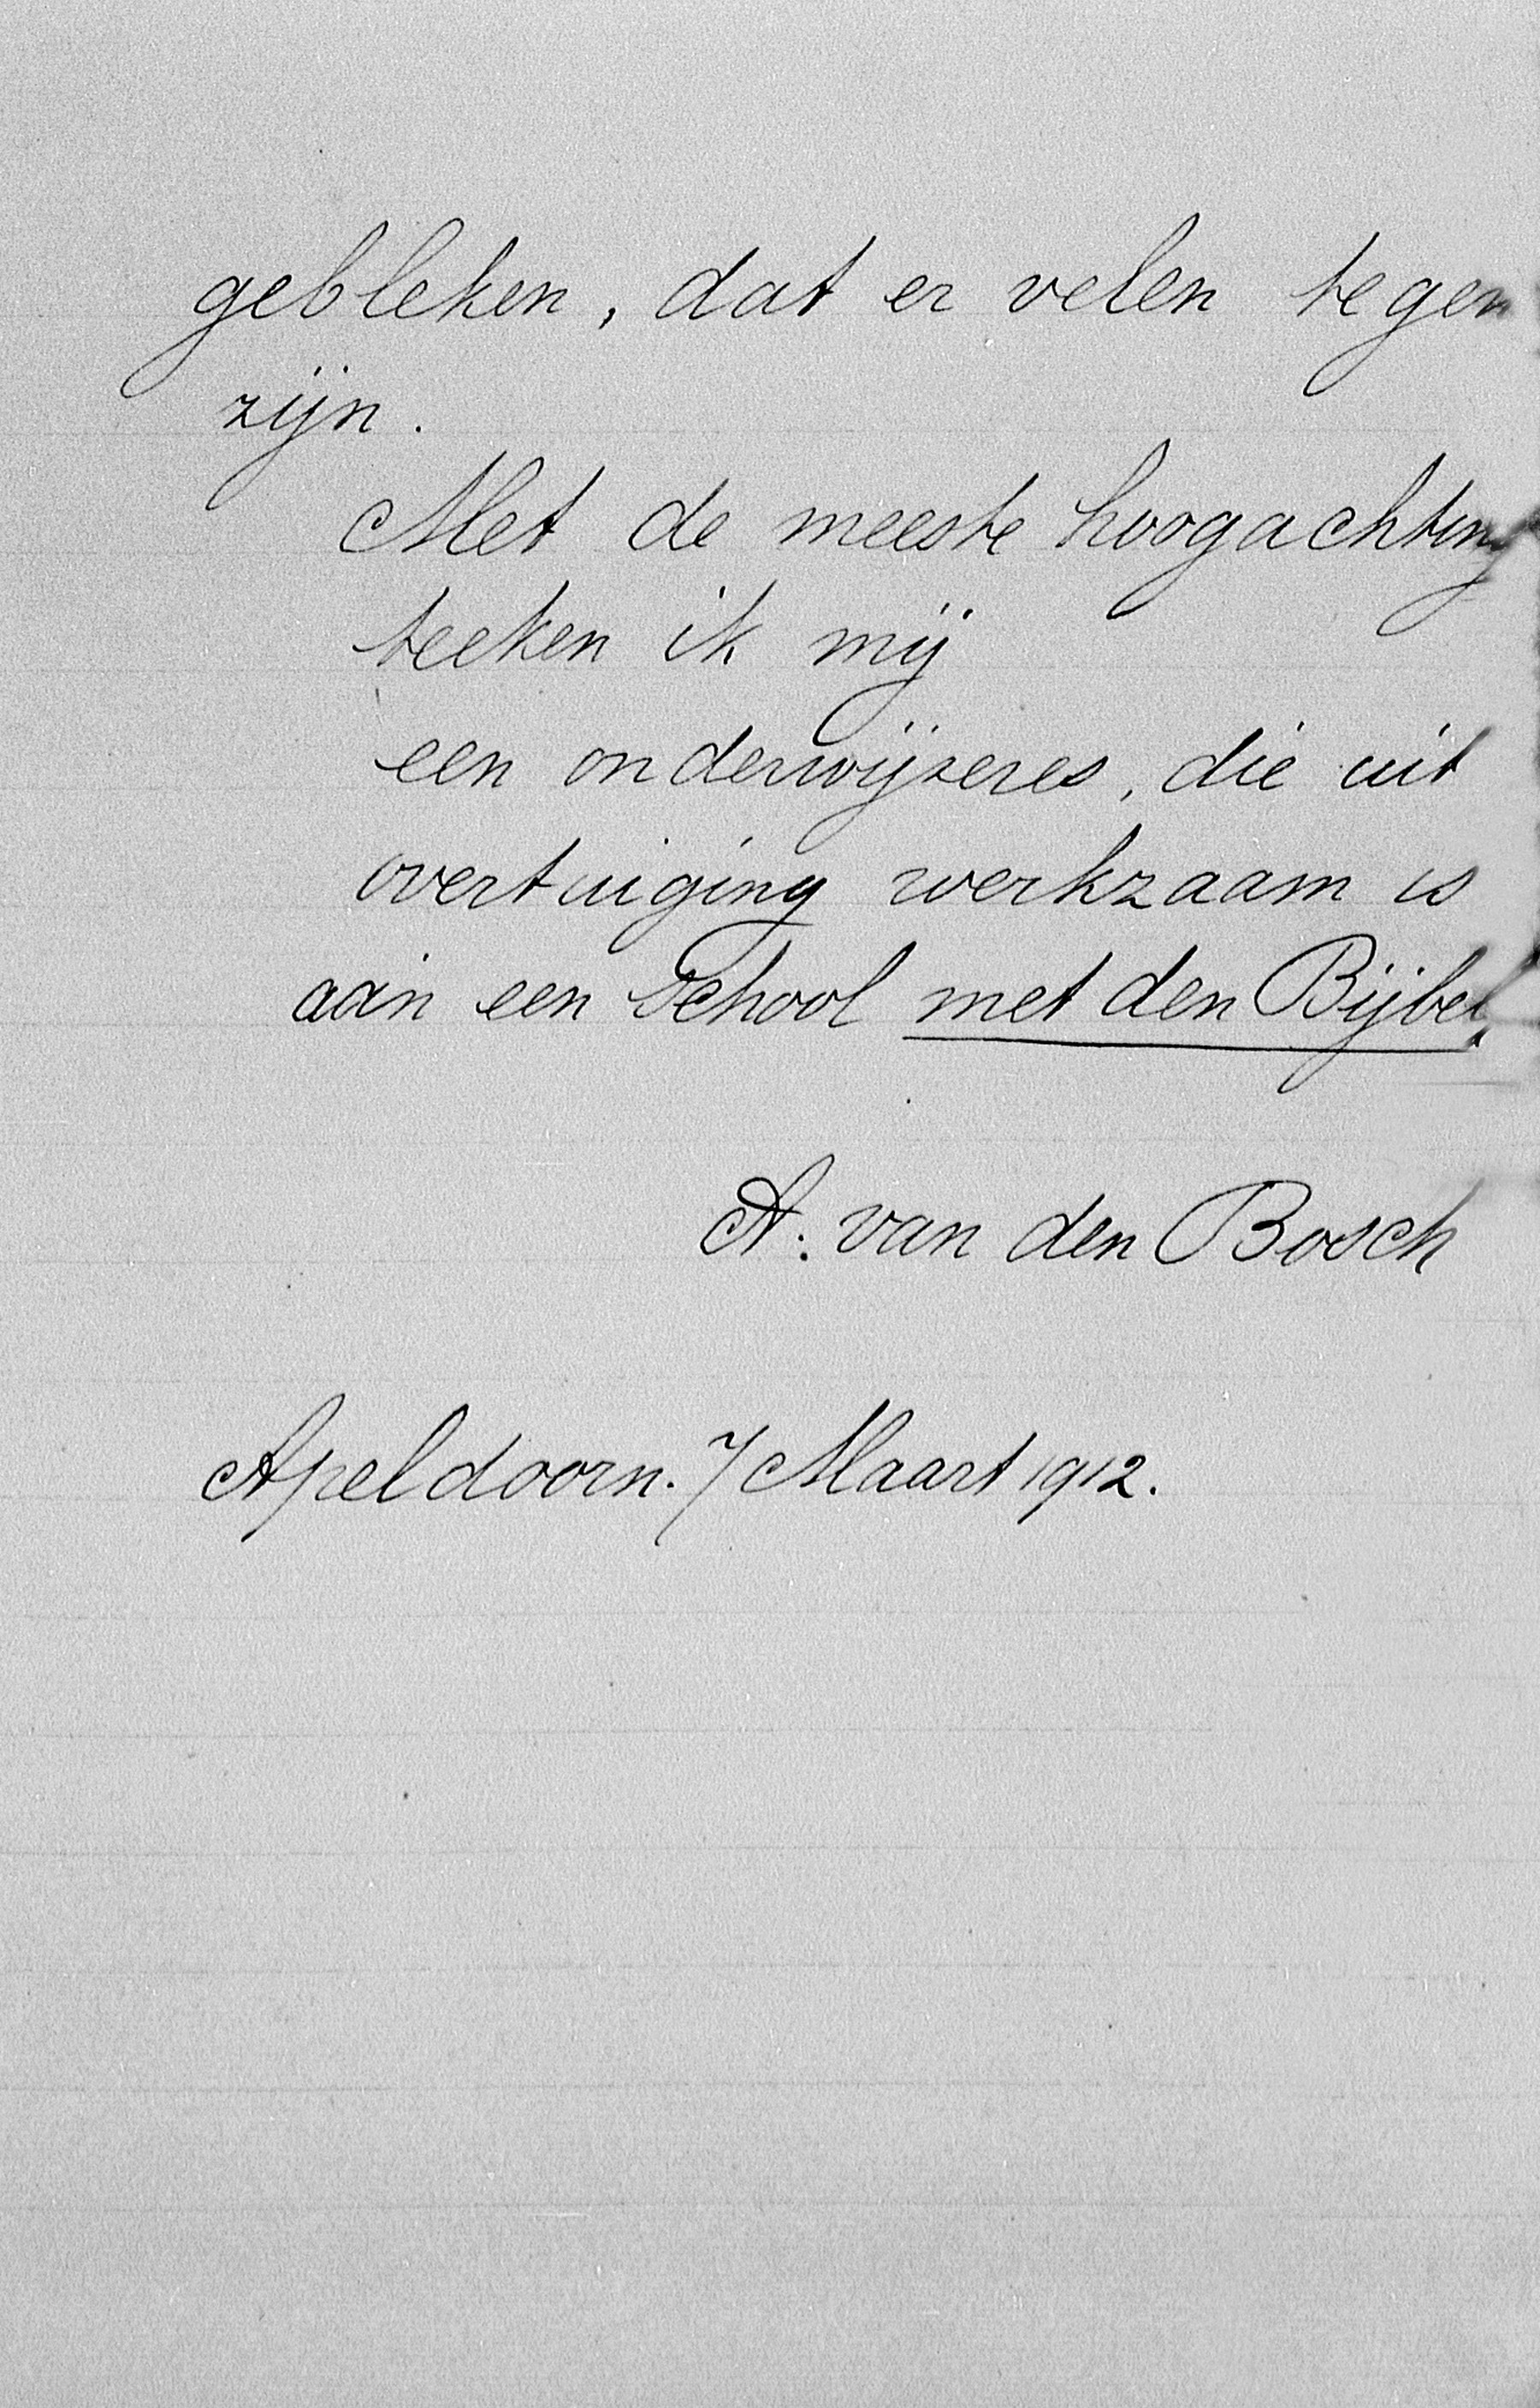 gebleken, dat er velen tegen
zijn.
Met de meeste hoogachting
teeken ik mij
een onderwijzeres, die uit
overtuiging werkzaam is
aan een School met den Bijbel.
A. van den Bosch
Apeldoorn. 7 Maart 1912.